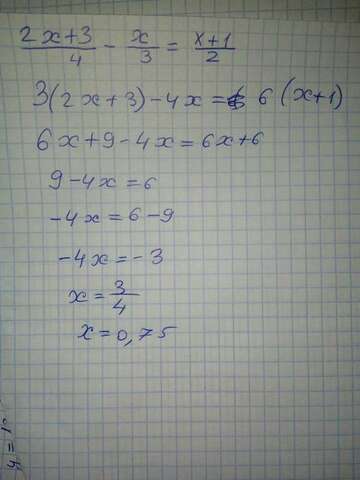 (2x+3)/4 - x/3 = (x+1)/2
3(2x+3)-4x= 6(x+1)
6x+9-4x=6x+6
9-4x=6
-4x=6-9
-4x=-3
x=3/4
x=0,75